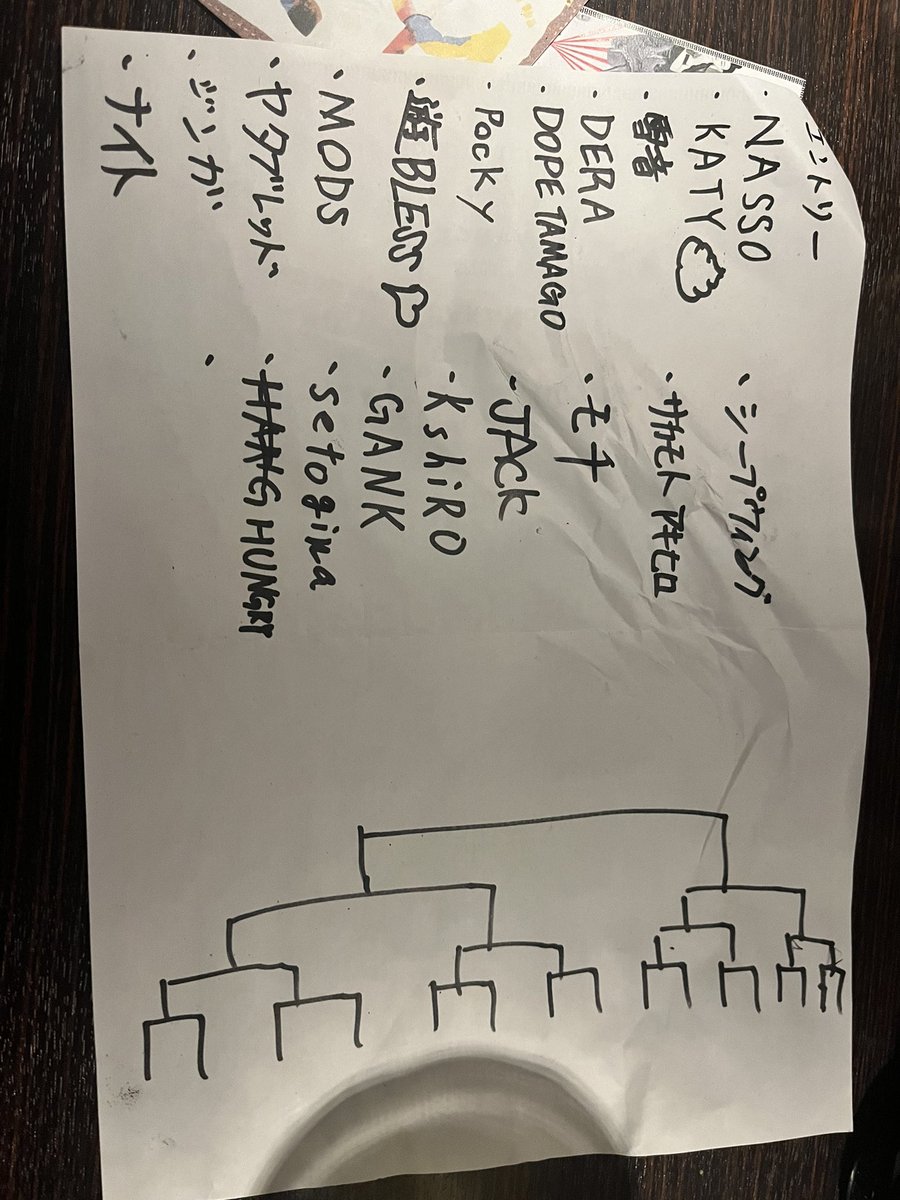 エントリー
・NASSO
・KATY
・DERA
・DOPE TAMAGO
・Pocky
・遊BLESS
・MODS
・ヤタブレッド
・ジンガ
・ナイト
・シープウィング
・サカモト アキヒロ
・モチ
・JACK
・KshiRO
・GANK
・setogina
・HANG HUNGRY
・